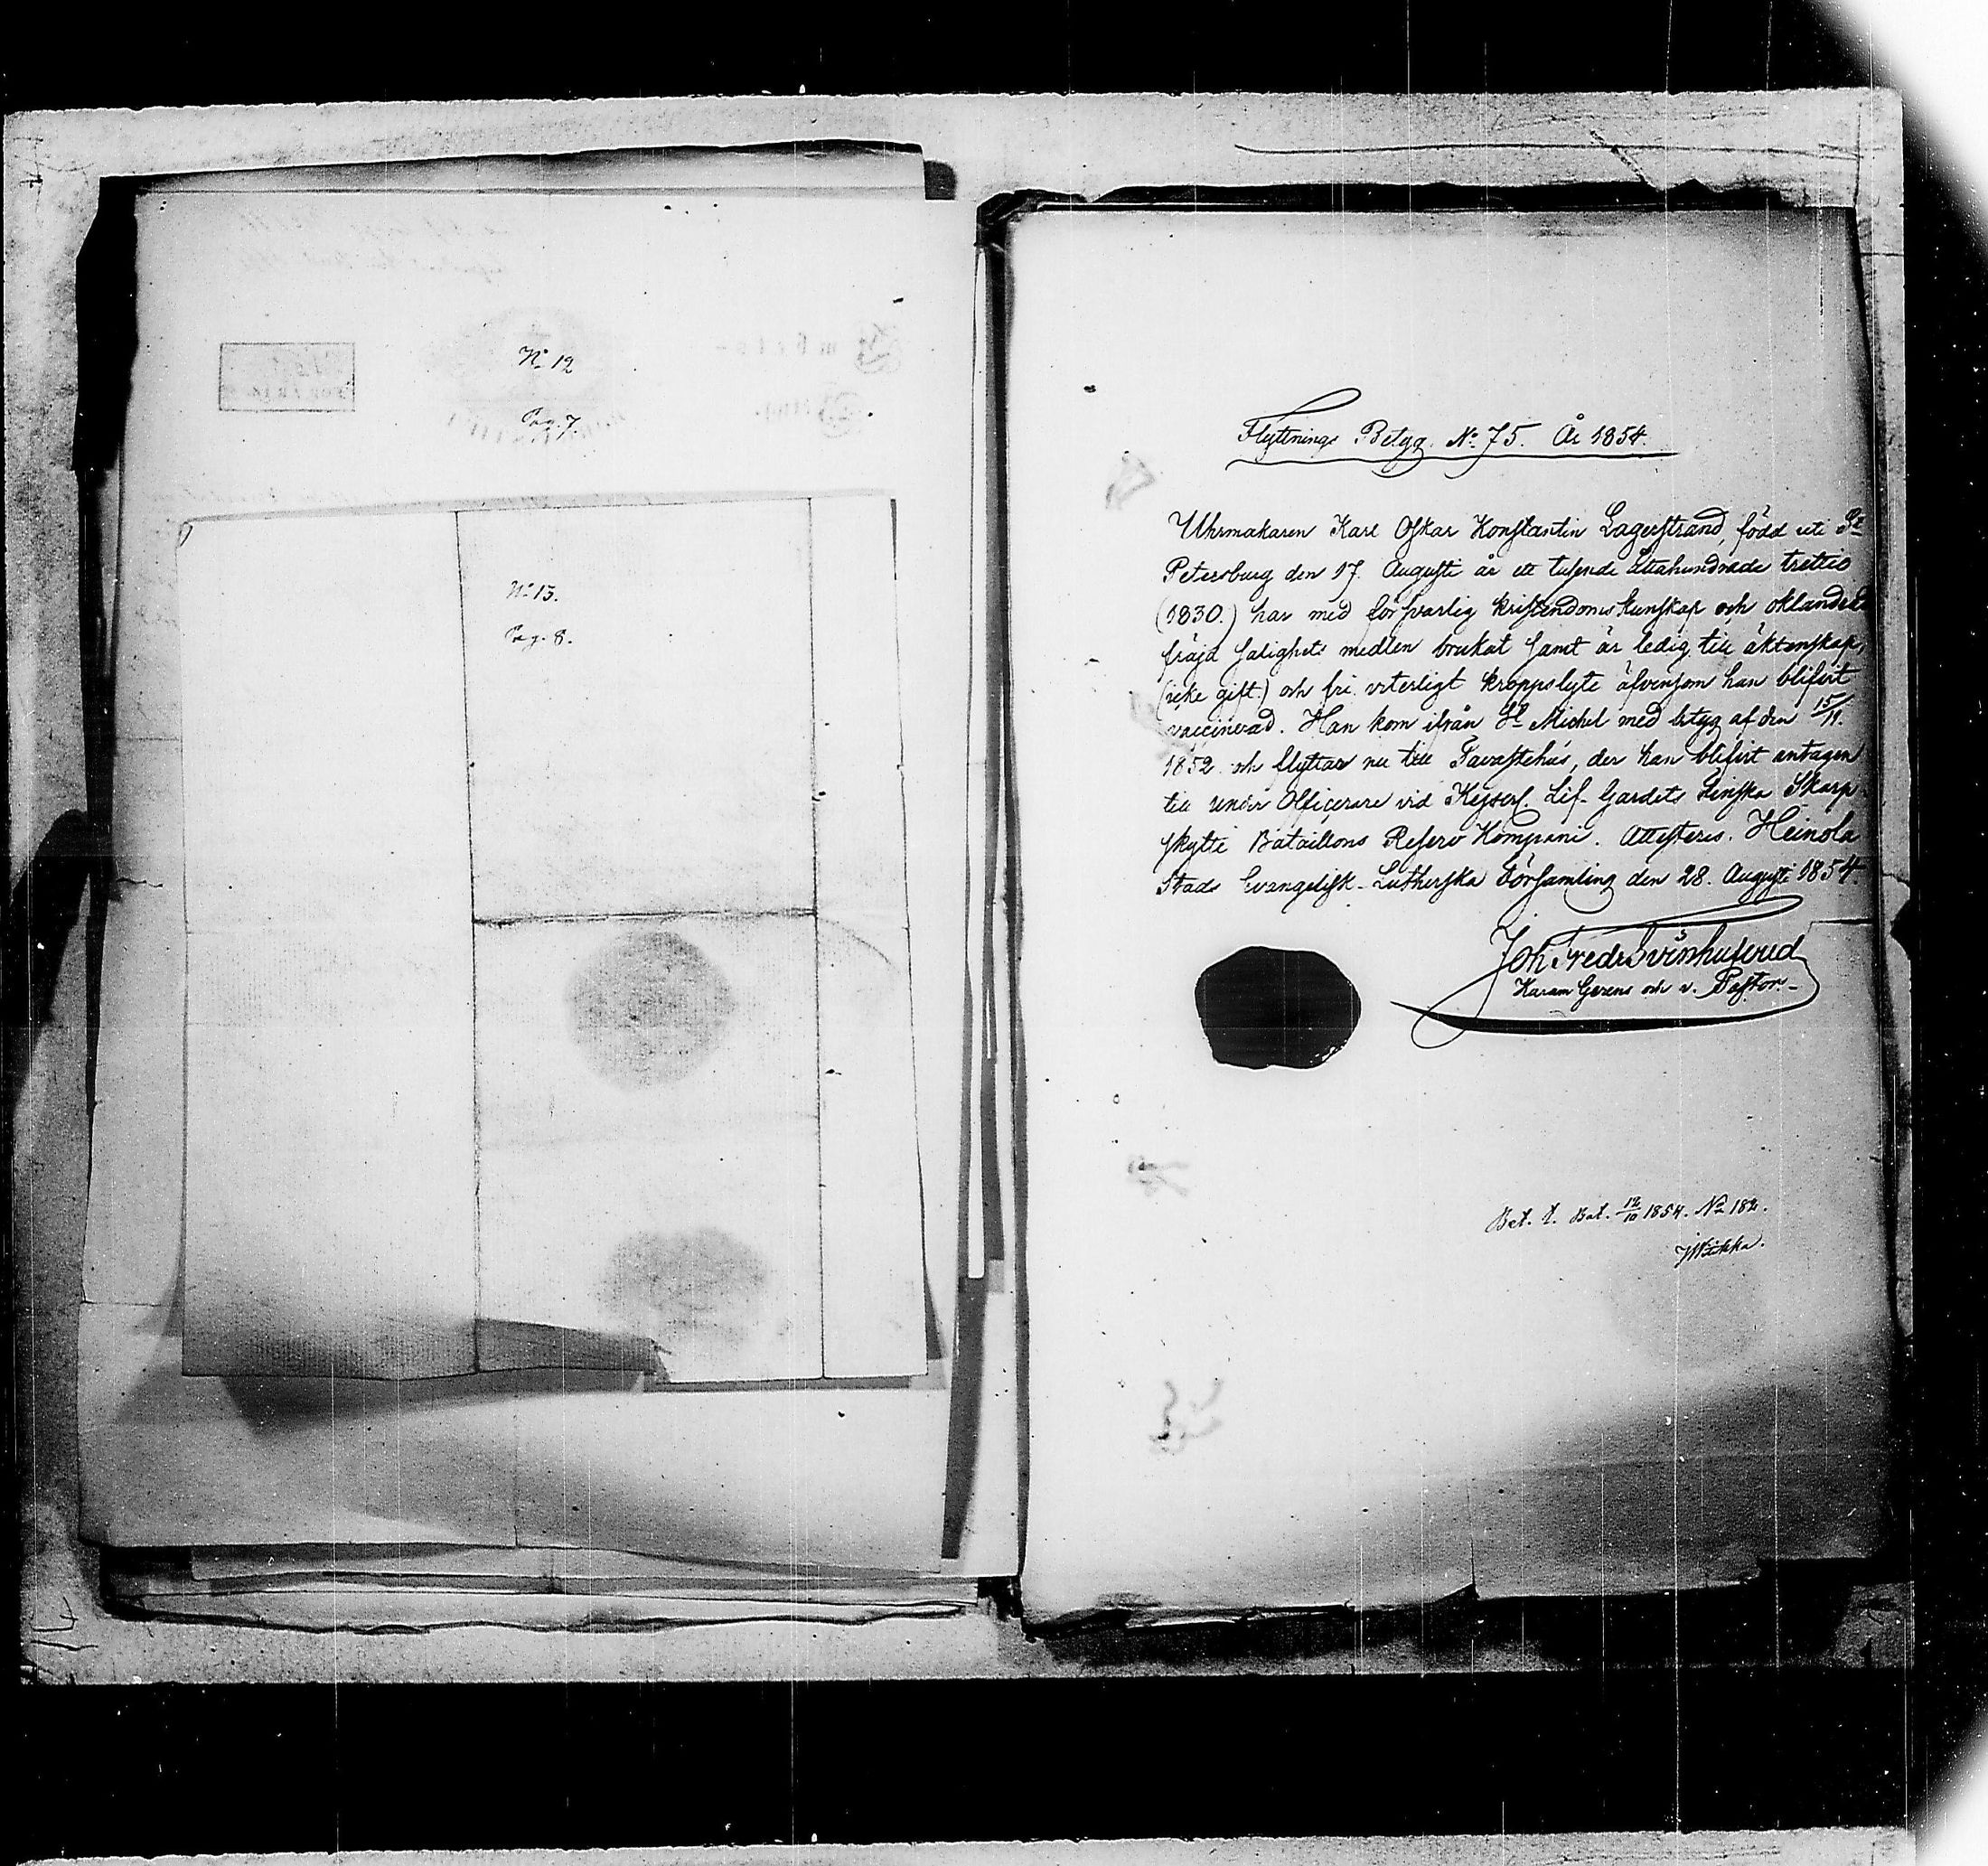 No 12
Pag. 7.
No 13.
Pag. 8.
Flyttnings Betyg. No 75. År 1854.
Uhrmakaren Karl Oskar Konstantin Lagerstrand, född uti St
Petersburg den 17. Augusti år ett tusende åttahundrade trettio
(1830.) har med försvarlig kristendomskunskap och oklandrad
fräjd salighets medlen brukat samt är ledig till äktenskap,
(icke gift.) och fri. viterligt kroppslyte äfvensom han blifvit
vaccinerad. Han kom ifrån St Michel med betyg af den 15/11.
1852 och flyttar nu till Tavastehus, der han blifvit antagen
till under Officerare vid Kejserl. Lif-Gardets Finska Skarp-
skytte Bataillons Reserv Kompani. Attesteras. Heinola
Stads Evangelisk-Lutherska Församling den 28. Augusti 1854.
Joh Fredr Svinhufvud
och v. Pastor.
Bet. t. Bat. 12/10 1854. No 182.